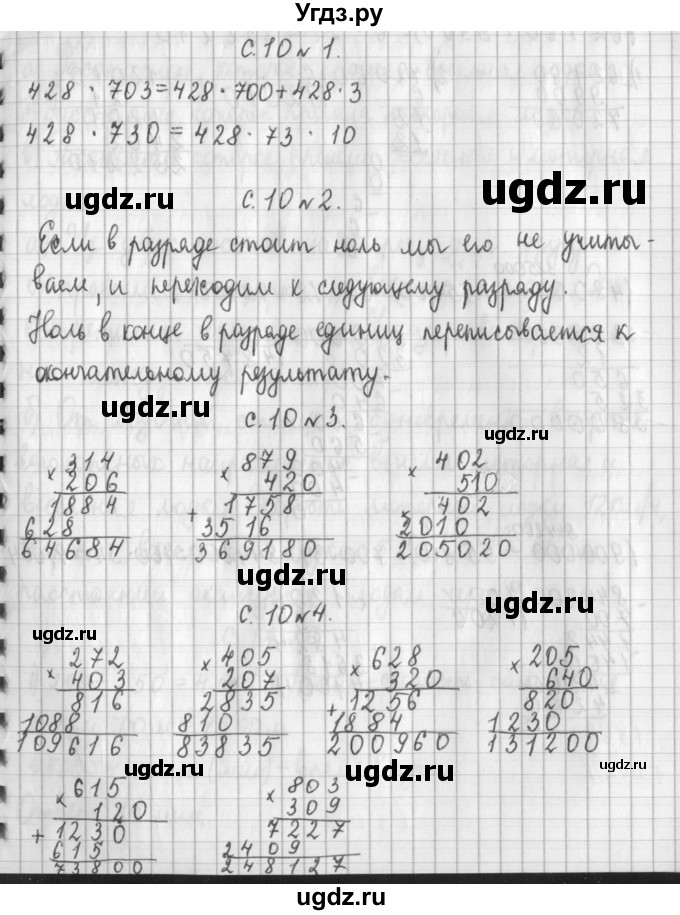 Угдз.ру
с. 10 № 1.
428 · 703 = 428 · 700 + 428 · 3
428 · 730 = 428 · 73 · 10
ugdz.ru
ugdz.ru
с. 10 № 2.
Если в разряде стоит ноль мы его не учиты-
ваем, и переходим к следующему разряду.
Ноль в конце в разряде единиц переписывается к
окончательному результату.
ugdz.ru
с. 10 № 3.
ugdz.ru
× 314 × 879 × 402
206 420 510
1884 + 1758 402
628 3516 2010
64684 369180 205020
ugdz.ru
ugdz.ru
с. 10 № 4.
ugdz.ru
× 272 × 405 × 628 × 205
403 207 320 640
816 2835 + 1256 820
1088 810 1884 1230
109616 83835 200960 131200
ugdz.ru
ugdz.ru
ugdz.ru
× 615 × 803
120 309
+ 1230 7227
615 2409
73800 248127
ugdz.ru